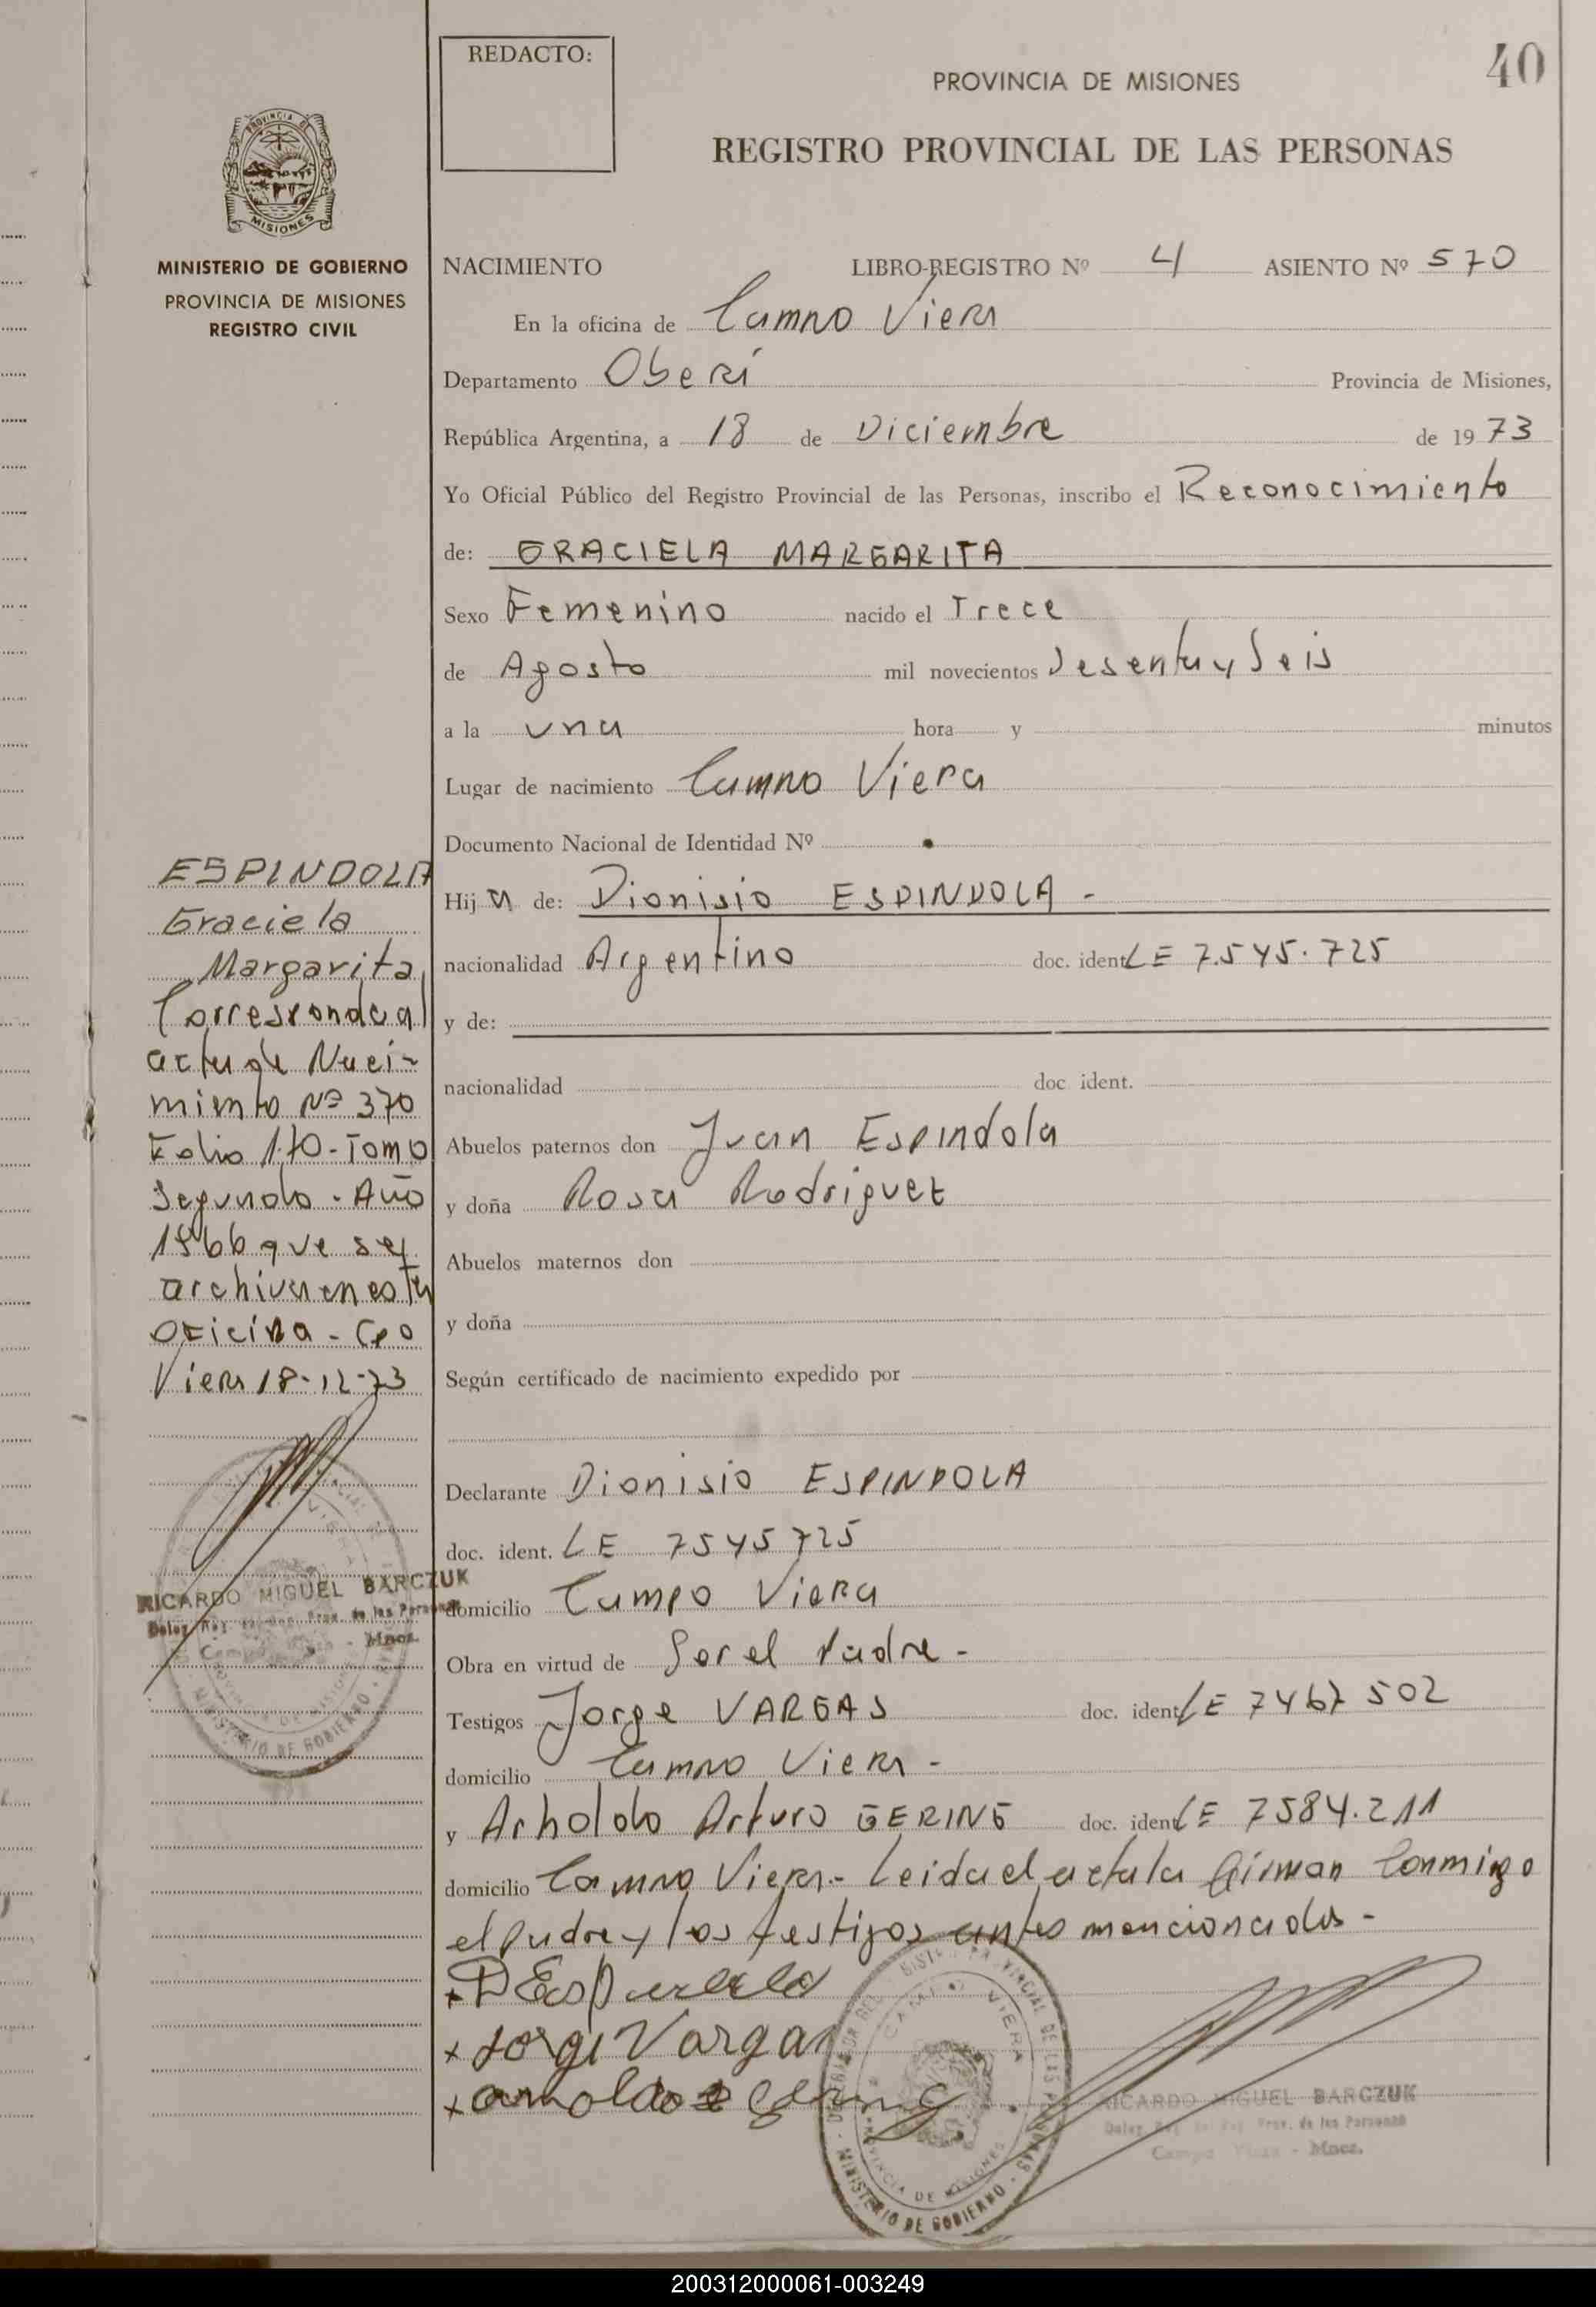 REDACTO:
40
PROVINCIA DE MISIONES
REGISTRO PROVINCIAL DE LAS PERSONAS
PROVINCIA DE
MISIONES
MINISTERIO DE GOBIERNO
PROVINCIA DE MISIONES
REGISTRO CIVIL
NACIMIENTO LIBRO-REGISTRO Nº 4 ASIENTO Nº 570
En la oficina de Campo Viera
Departamento Oberá Provincia de Misiones,
República Argentina, a 18 de Diciembre de 1973
Yo Oficial Público del Registro Provincial de las Personas, inscribo el Reconocimiento
de: GRACIELA MARGARITA
Sexo Femenino nacido el Trece
de Agosto mil novecientos Sesenta y Seis
a la una hora y minutos
Lugar de nacimiento Campo Viera
Documento Nacional de Identidad Nº
Hija de: Dionisio ESPINDOLA -
nacionalidad Argentino doc. ident. LE 7.545.725
y de:
nacionalidad doc ident.
Abuelos paternos don Juan Espindola
y doña Rosa Rodriguez
Abuelos maternos don
y doña
Según certificado de nacimiento expedido por
Declarante Dionisio ESPINDOLA
doc. ident. LE 7545725
domicilio Campo Viera
Obra en virtud de Ser el Padre -
Testigos Jorge VARGAS doc. ident. LE 7467502
domicilio Campo Viera -
y Arnoldo Arturo GERING doc. ident. LE 7584.211
domicilio Campo Viera.- Leida el acta la firman Conmigo
el Padre y los testigos antes mencionados -
x D Espindola
x Jorge Vargas
x arnoldo gering
ESPINDOLA
Graciela
Margarita
Corresponde al
acta de Naci-
miento Nº 370
Folio 170 - Tomo
Segundo - Año
1966 que se
archiva en esta
Oficina - Cpo
Viera 18-12-73
RICARDO MIGUEL BARCZUK
Deleg. Reg. Prov. de las Personas
Campo Viera - Mnes.
MINISTERIO DE GOBIERNO
PROVINCIA DE MISIONES
CAMPO VIERA
PROVINCIA DE MISIONES
MINISTERIO DE GOBIERNO
RICARDO MIGUEL BARCZUK
Deleg. Prov. de las Personas
Campo Viera - Mnes.
200312000061-003249